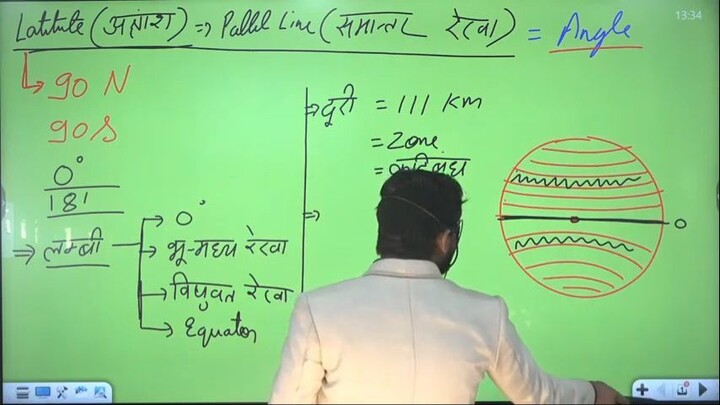 Latitute (अक्षांश) ⇒ Pallel Line (समान्तर रेखा) = Angle
90 N
90 S
0°
181
⇒ लम्बी → 0°
→ भू-मध्य रेखा
→ विषुवत रेखा
→ Equator
⇒ दूरी = 111 km
= Zone
= कटिबंध
⇒
0
13:34